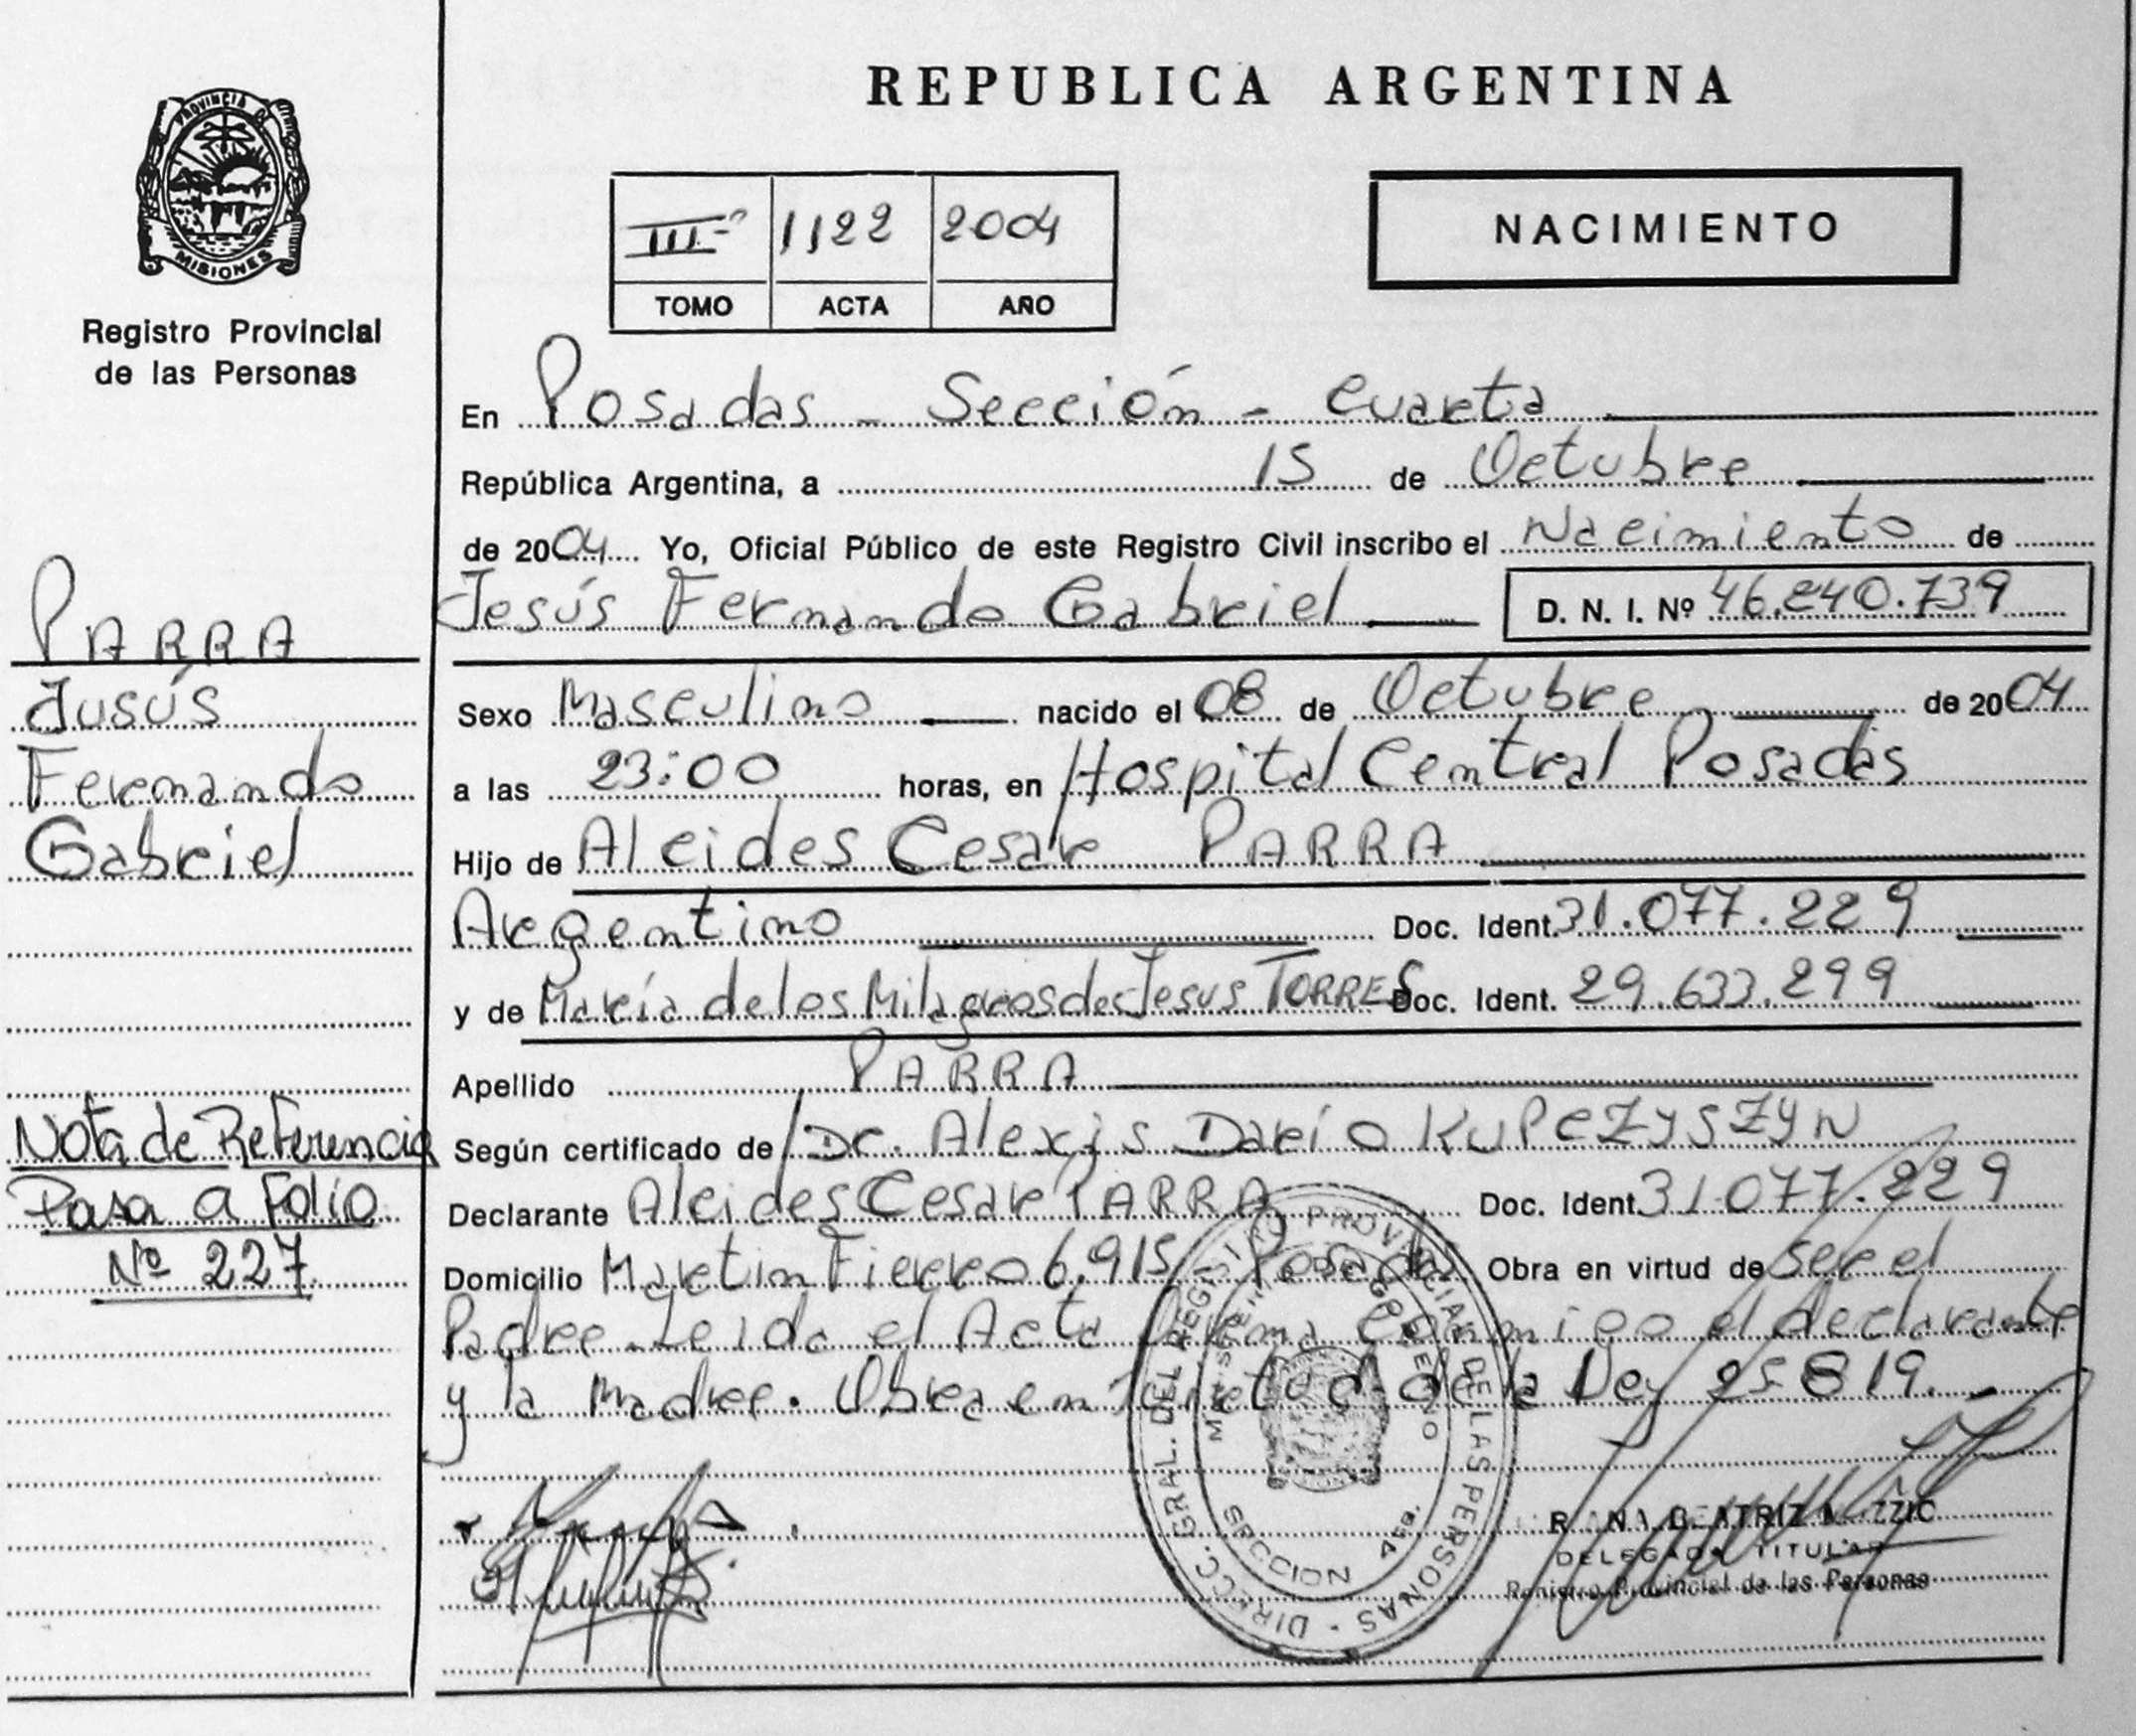 REPUBLICA ARGENTINA
PROVINCIA DE
MISIONES
Registro Provincial
de las Personas
III-º 1122 2004
TOMO ACTA AÑO
NACIMIENTO
En Posadas - Sección - Cuarta
República Argentina, a 15 de Octubre
de 2004 Yo, Oficial Público de este Registro Civil inscribo el Nacimiento de
Jesús Fernando Gabriel D. N. I. Nº 46.240.739
Sexo Masculino nacido el 08 de Octubre de 2004
a las 23:00 horas, en Hospital Central Posadas
Hijo de Alcides Cesar PARRA
Argentino Doc. Ident. 31.077.229
y de María de los Milagros de Jesus TORRES Doc. Ident. 29.633.299
Apellido PARRA
Según certificado de Dr. Alexis Darío KUPCZYSZYN
Declarante Alcides Cesar PARRA Doc. Ident. 31.077.229
Domicilio Martin Fierro 6.915 - Posadas Obra en virtud de ser el
Padre. Leida el Acta Firma conmigo el declarante
y la Madre. Obra en virtud de la Ley 25819.-
PARRA
Jusús
Fernando
Gabriel
Nota de Referencia
Pasa a Folio
Nº 227
DIRECC. GRAL. DEL REGISTRO PROVINCIAL DE LAS PERSONAS
MINISTERIO DE GOBIERNO
SECCION 4ta.
BEATRIZ
DELEGADA TITULAR
Registro Provincial de las Personas